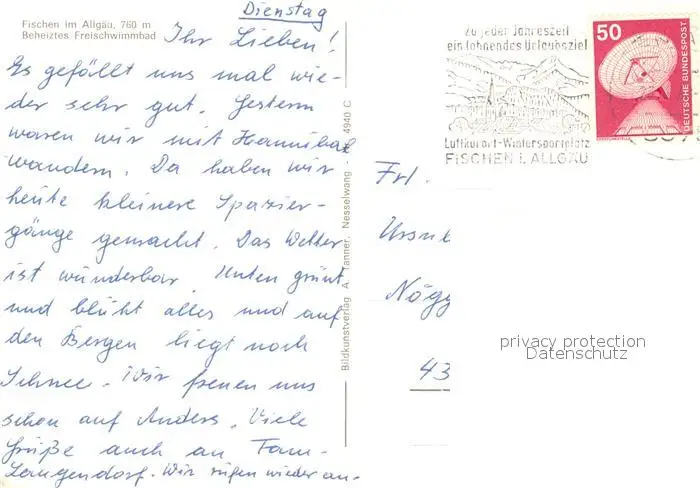 Fischen im Allgäu, 760 m
Beheiztes Freischwimmbad
Dienstag
Ihr Lieben!
Es gefällt uns mal wie-
der sehr gut. Gestern
waren wir mit Hannibal
wandern. Da haben wir
heute kleinere Spazier-
gänge gemacht. Das Wetter
ist wunderbar. Unten grünt
und blüht alles und auf
den Bergen liegt noch
Schnee. Wir freuen uns
schon auf Anders. Viele
Grüße auch an Fam.
Langendorf. Wir rufen wieder an.
Bildkunstverlag A. Tanner, Nesselwang 4940 C
Zu jeder Jahreszeit
ein lohnendes Urlaubsziel
Luftkurort-Wintersportplatz
FISCHEN I. ALLGÄU
50
DEUTSCHE BUNDESPOST
Frl.
Nögg
43
privacy protection
Datenschutz